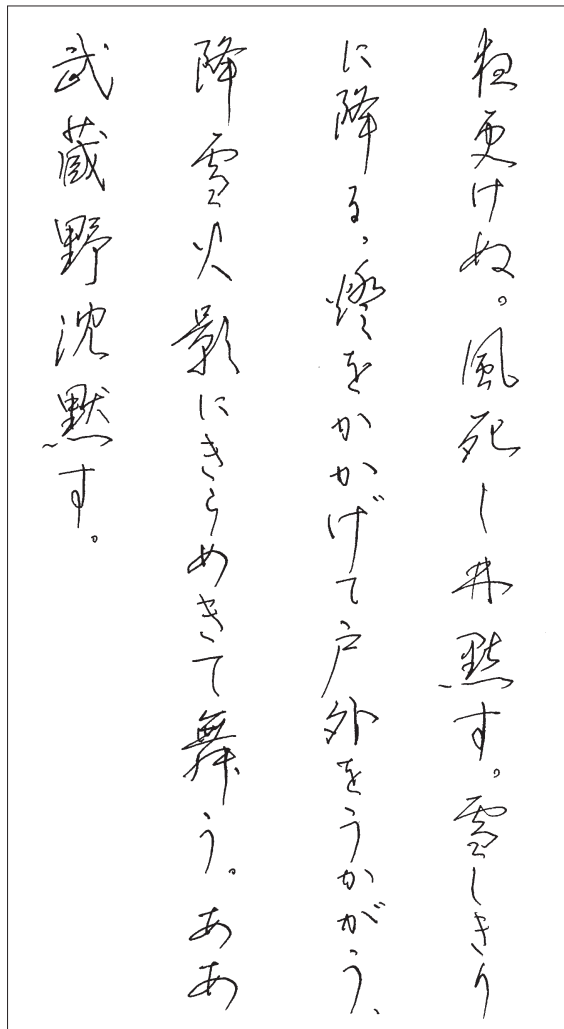 夜更けぬ。風死し林黙す。雪しきり
に降る。燈をかかげて戸外をうかがう、
降雪火影にきらめきて舞う。ああ
武蔵野沈黙す。